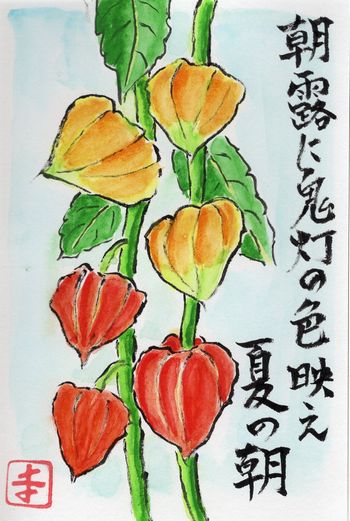 朝露に鬼灯の色映え
夏の朝